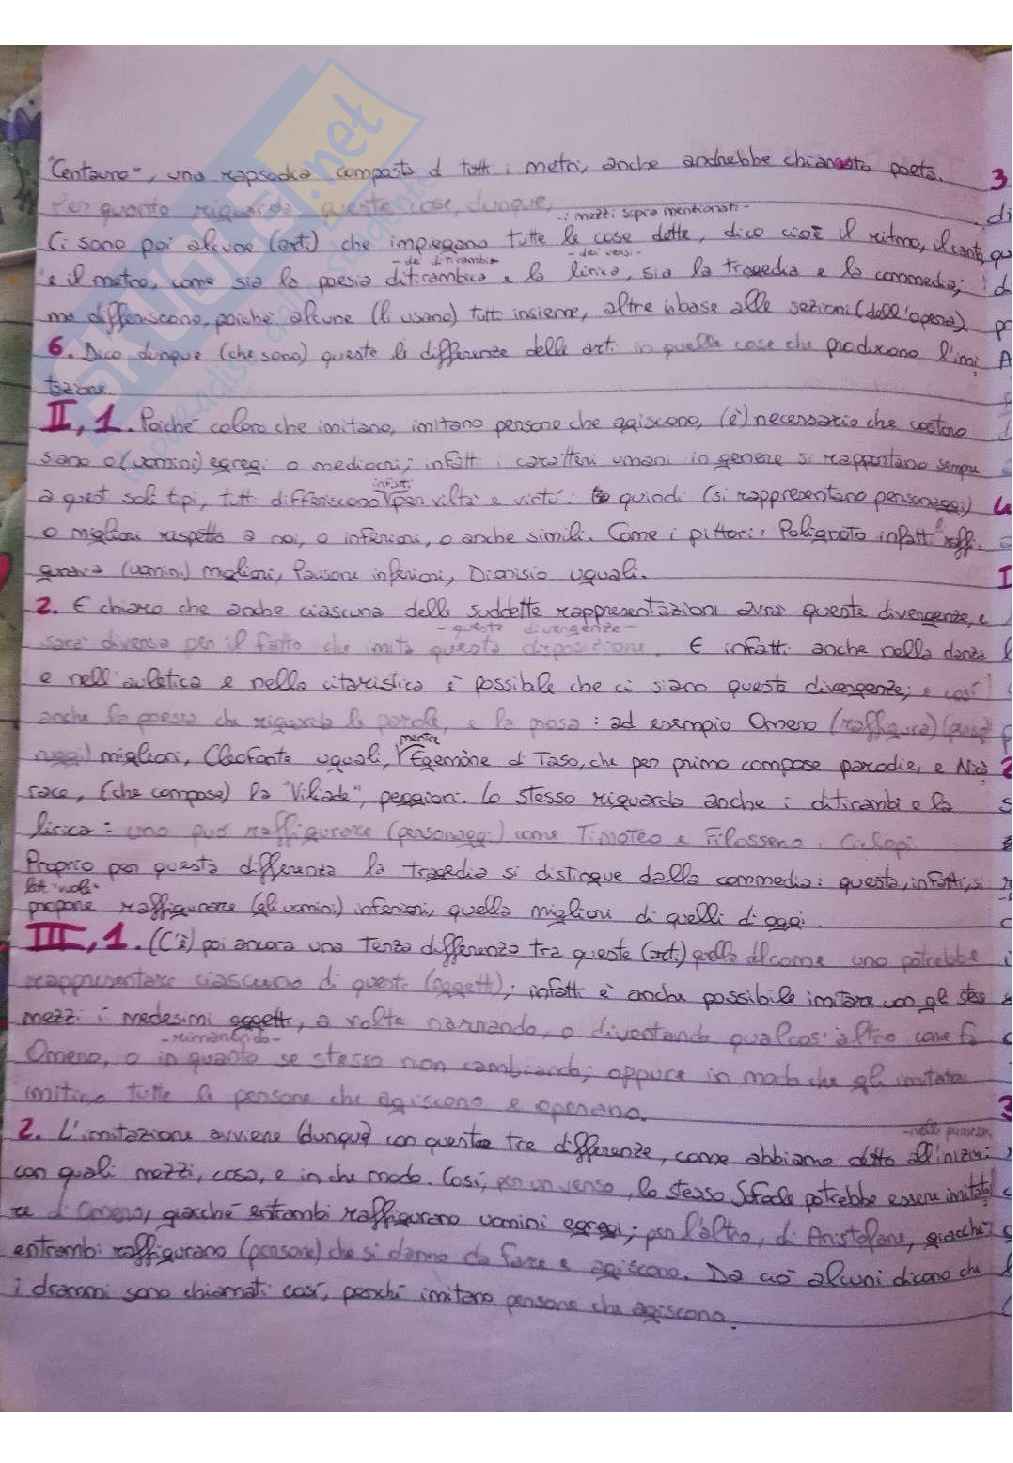 "Centauro", una rapsodia composta di tutti i metri, anche andrebbe chiamato poeta.
Per quanto riguarda queste cose, dunque,
- i mezzi sopra menzionati -
Ci sono poi alcune (arti) che impiegano tutte le cose dette, dico cioè il ritmo, il canto
- dei ditirambi - - dei versi -
e il metro, come sia la poesia ditirambica e la lirica, sia la tragedia e la commedia;
ma differiscono, poiché alcune (li usano) tutti insieme, altre in base alle sezioni (dell'opera).
6. Dico dunque (che sono) queste le differenze delle arti in quelle cose che producono l'imi
tazione.
II, 1. Poiché coloro che imitano, imitano persone che agiscono, (è) necessario che costoro
siano o (uomini) egregi o mediocri; infatti i caratteri umani in genere si rapportano sempre
a questi soli tipi, tutti differiscono infatti per viltà e virtù: quindi (si rappresentano personaggi)
o migliori rispetto a noi, o inferiori, o anche simili. Come i pittori: Polignoto infatti raffi
gurava (uomini) migliori, Pausone inferiori, Dionisio uguali.
2. È chiaro che anche ciascuna delle suddette rappresentazioni avrà queste divergenze, e
- queste divergenze -
sarà diversa per il fatto che imita questa disposizione. E infatti anche nella danza
e nell'auletica e nella citaristica è possibile che ci siano queste divergenze; e così
anche la poesia che riguarda le parole, e la prosa: ad esempio Omero (raffigura) (perso
naggi) migliori, Cleofonte uguali, mentre Egemone di Taso, che per primo compose parodie, e Nico
race, (che compose) la "Viliade", peggiori. Lo stesso riguarda anche i ditirambi e la
lirica: uno può raffigurare (personaggi) come Timoteo e Filosseno i Ciclopi.
Proprio per questa differenza la tragedia si distingue dalla commedia: questa, infatti, si
propone raffigurare (gli uomini) inferiori, quella migliori di quelli di oggi.
III, 1. (C'è) poi ancora una terza differenza tra queste (arti) quella del come uno potrebbe
rappresentare ciascuno di questi (oggetti); infatti è anche possibile imitare con gli stessi
mezzi i medesimi oggetti, a volte narrando, o diventando qualcos'altro come fa
- rimanendo -
Omero, o in quanto se stesso non cambiando; oppure in modo che gli imitatori
imitino tutte le persone che agiscono e operano.
2. L'imitazione avviene (dunque) con queste tre differenze, come abbiamo detto all'inizio:
con quali mezzi, cosa, e in che modo. Così, per un verso, lo stesso Sofocle potrebbe essere imitato
re di Omero, giacché entrambi raffigurano uomini egregi; per l'altro, di Aristofane, giacché
entrambi raffigurano (persone) che si danno da fare e agiscono. Da ciò alcuni dicono che
i drammi sono chiamati così, perché imitano persone che agiscono.